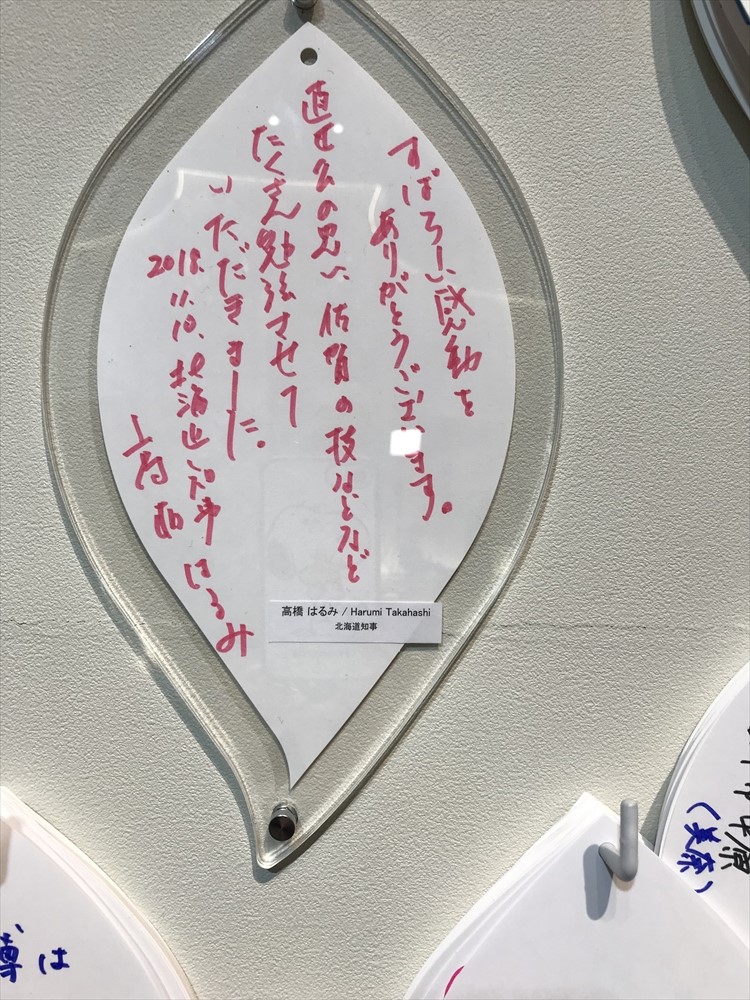 すばらしい感動を
ありがとうございます。
直正公の思い、佐賀の技などなど
たくさん勉強させて
いただきました。
2018.11.10. 北海道知事 はるみ
高橋
高橋 はるみ / Harumi Takahashi
北海道知事
(美奈)
は